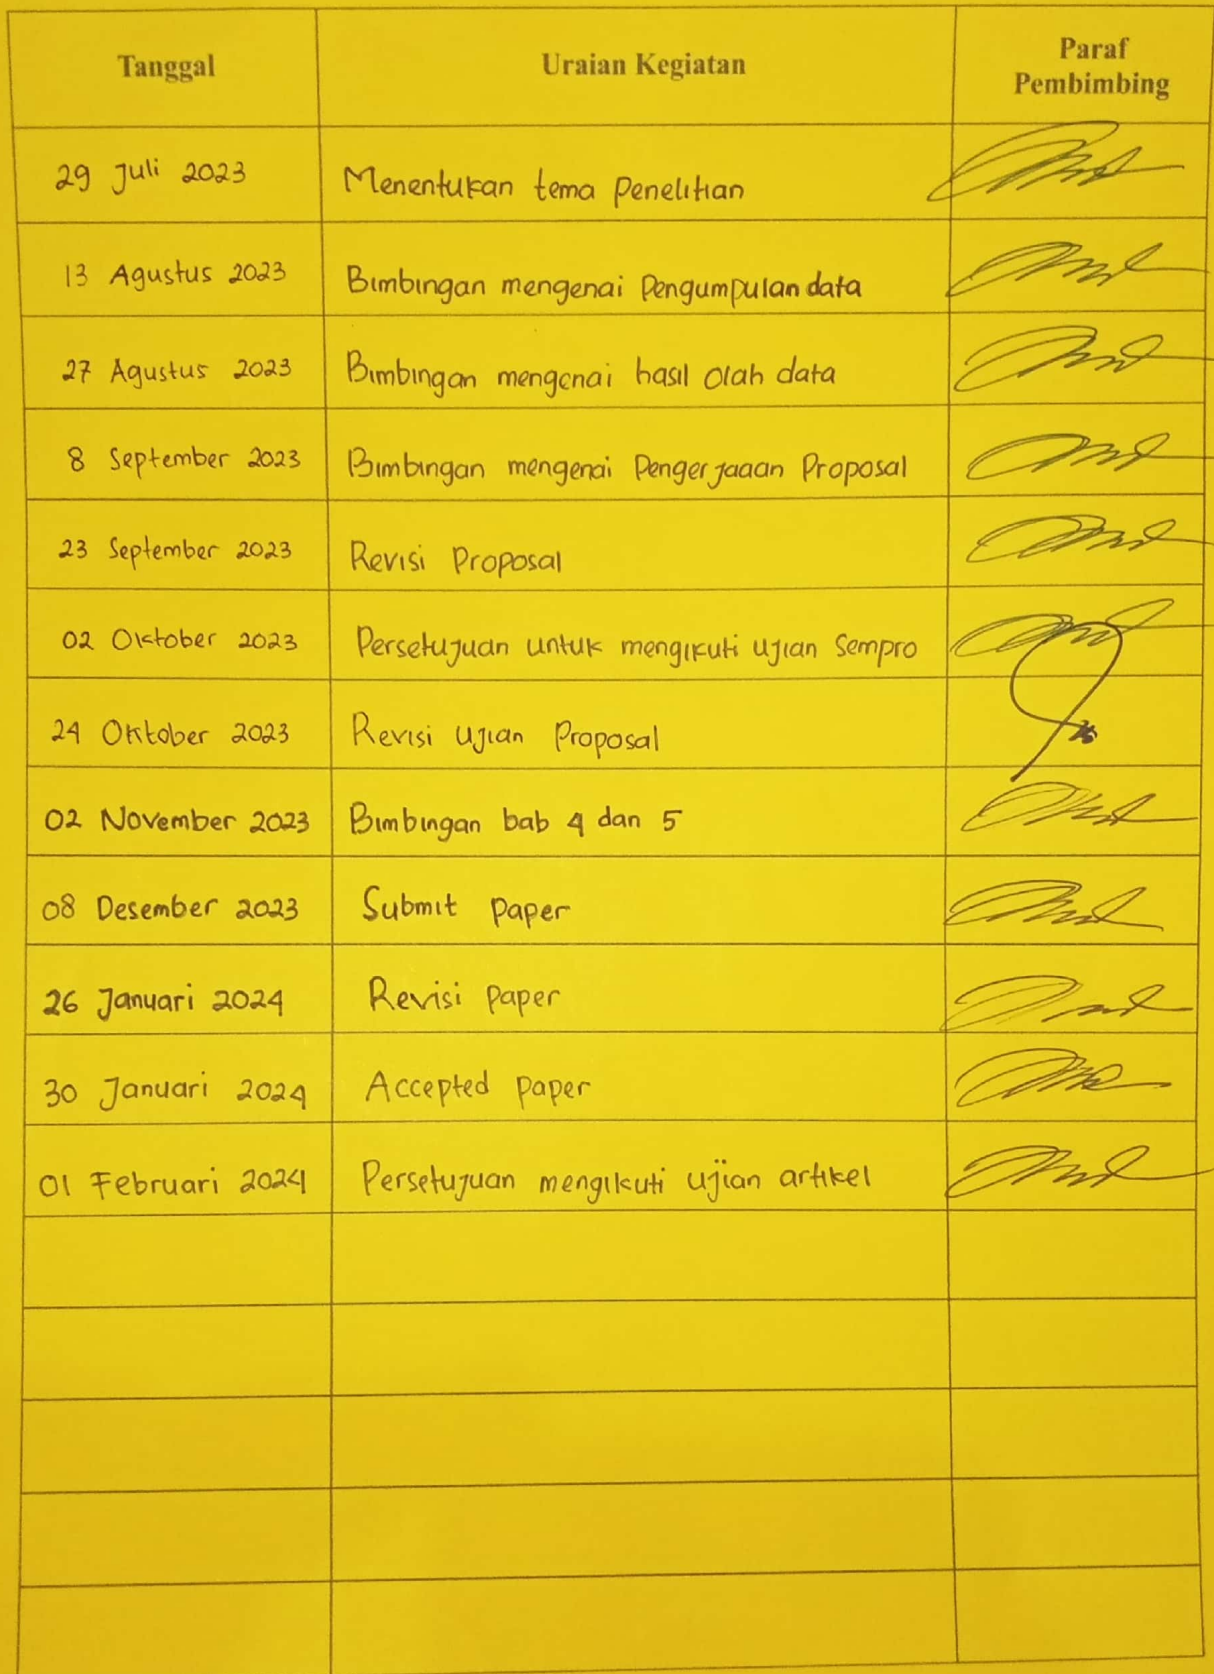 Tanggal Uraian Kegiatan Paraf
Pembimbing
29 Juli 2023 Menentukan tema Penelitian
13 Agustus 2023 Bimbingan mengenai Pengumpulan data
27 Agustus 2023 Bimbingan mengenai hasil olah data
8 September 2023 Bimbingan mengenai Pengerjaaan Proposal
23 September 2023 Revisi Proposal
02 Oktober 2023 Persetujuan untuk mengikuti ujian Sempro
24 Oktober 2023 Revisi ujian Proposal
02 November 2023 Bimbingan bab 4 dan 5
08 Desember 2023 Submit paper
26 Januari 2024 Revisi paper
30 Januari 2024 Accepted paper
01 Februari 2024 Persetujuan mengikuti ujian artikel